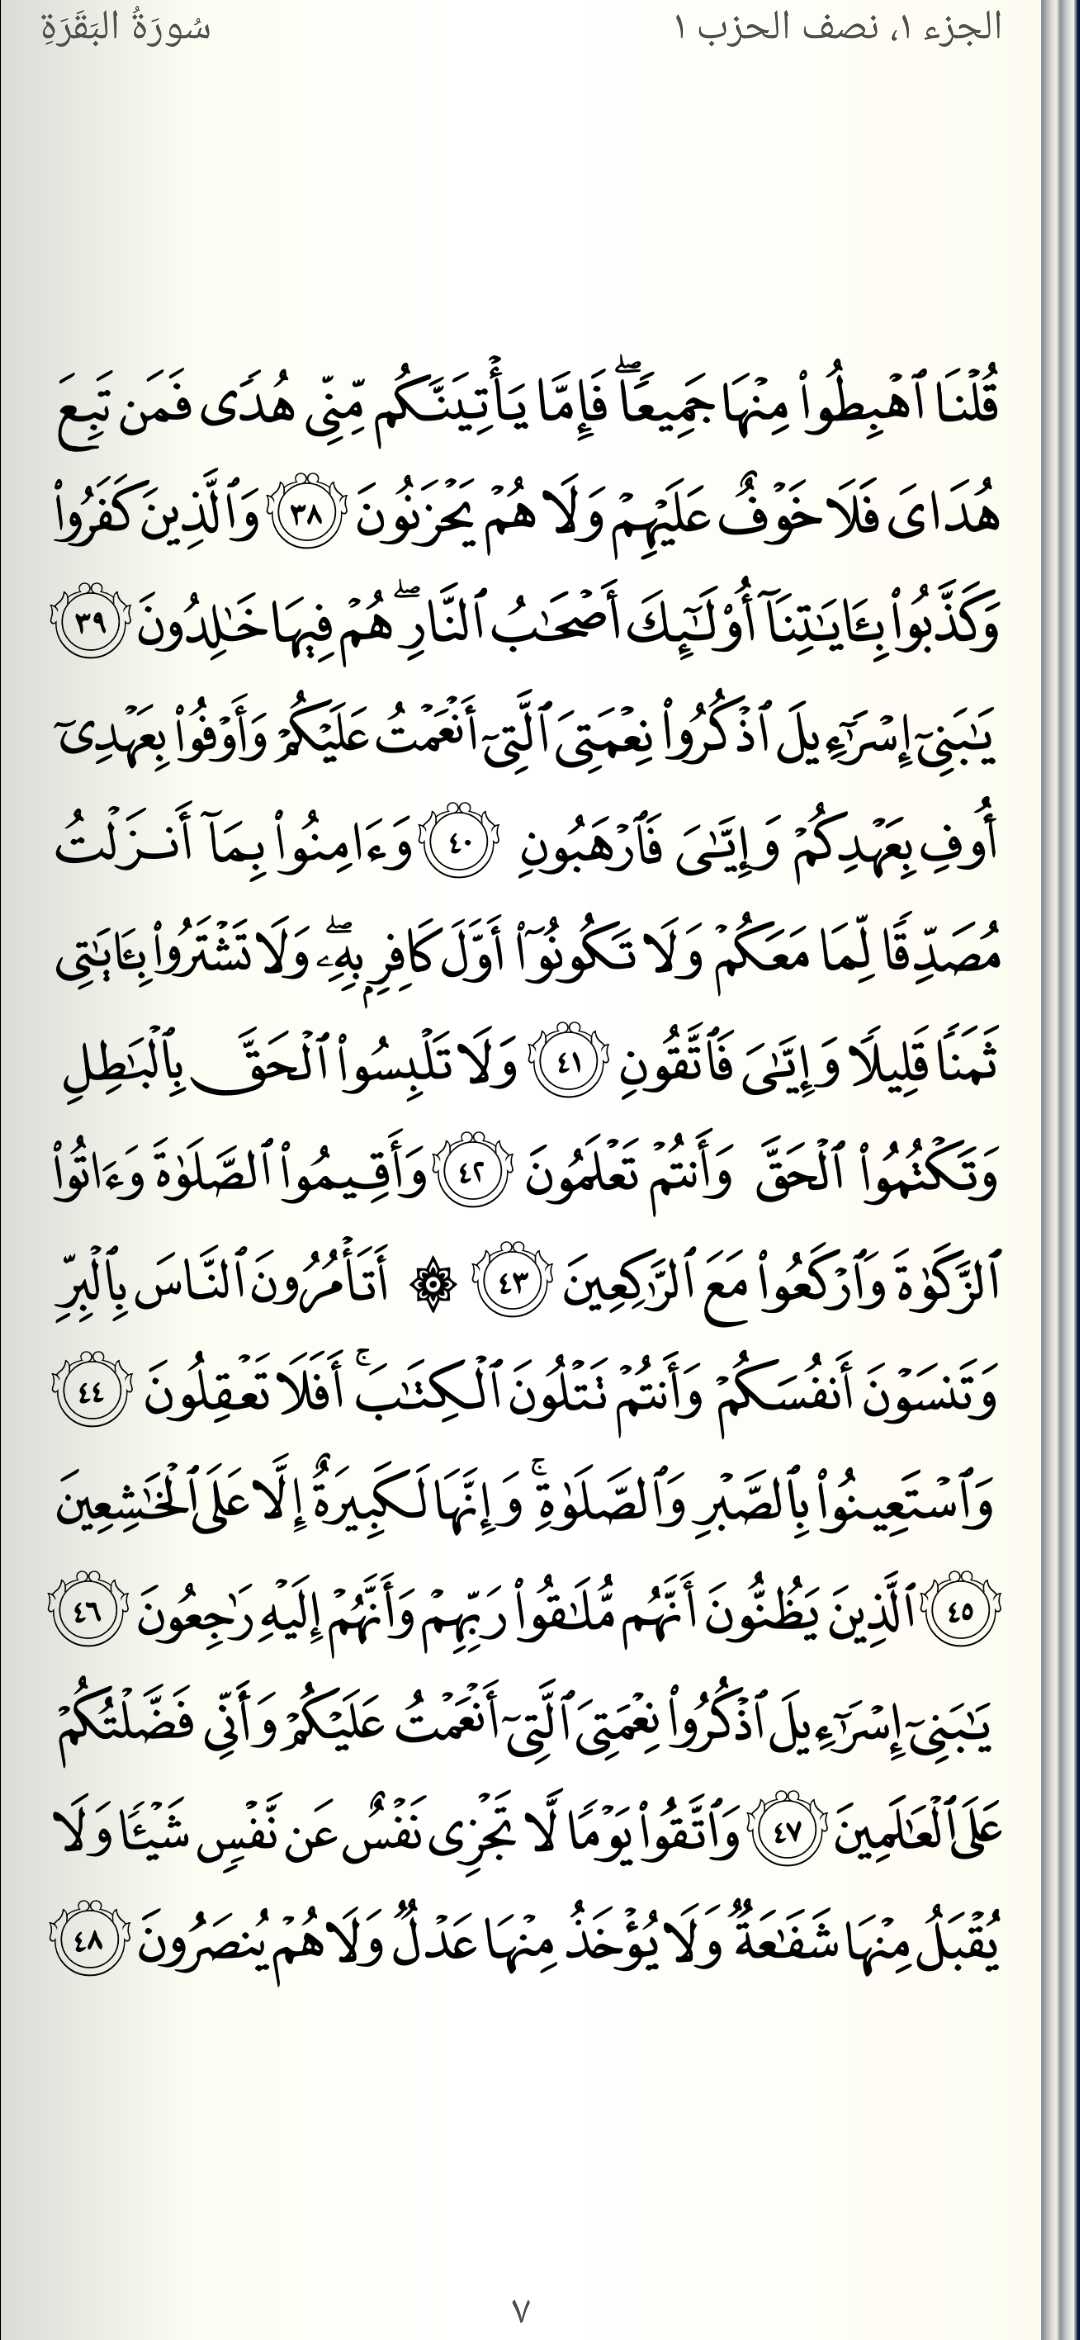 الجزء ١، نصف الحزب ١
سُورَةُ البَقَرَةِ
قُلْنَا ٱهْبِطُوا۟ مِنْهَا جَمِيعًۭا ۖ فَإِمَّا يَأْتِيَنَّكُم مِّنِّى هُدًۭى فَمَن تَبِعَ
هُدَاىَ فَلَا خَوْفٌ عَلَيْهِمْ وَلَا هُمْ يَحْزَنُونَ ٣٨ وَٱلَّذِينَ كَفَرُوا۟
وَكَذَّبُوا۟ بِـَٔايَـٰتِنَآ أُو۟لَـٰٓئِكَ أَصْحَـٰبُ ٱلنَّارِ ۖ هُمْ فِيهَا خَـٰلِدُونَ ٣٩
يَـٰبَنِىٓ إِسْرَٰٓءِيلَ ٱذْكُرُوا۟ نِعْمَتِىَ ٱلَّتِىٓ أَنْعَمْتُ عَلَيْكُمْ وَأَوْفُوا۟ بِعَهْدِىٓ
أُوفِ بِعَهْدِكُمْ وَإِيَّـٰىَ فَٱرْهَبُونِ ٤٠ وَءَامِنُوا۟ بِمَآ أَنزَلْتُ
مُصَدِّقًۭا لِّمَا مَعَكُمْ وَلَا تَكُونُوٓا۟ أَوَّلَ كَافِرٍۭ بِهِۦ ۖ وَلَا تَشْتَرُوا۟ بِـَٔايَـٰتِى
ثَمَنًۭا قَلِيلًۭا وَإِيَّـٰىَ فَٱتَّقُونِ ٤١ وَلَا تَلْبِسُوا۟ ٱلْحَقَّ بِٱلْبَـٰطِلِ
وَتَكْتُمُوا۟ ٱلْحَقَّ وَأَنتُمْ تَعْلَمُونَ ٤٢ وَأَقِيمُوا۟ ٱلصَّلَوٰةَ وَءَاتُوا۟
ٱلزَّكَوٰةَ وَٱرْكَعُوا۟ مَعَ ٱلرَّٰكِعِينَ ٤٣ ۞ أَتَأْمُرُونَ ٱلنَّاسَ بِٱلْبِرِّ
وَتَنسَوْنَ أَنفُسَكُمْ وَأَنتُمْ تَتْلُونَ ٱلْكِتَـٰبَ ۚ أَفَلَا تَعْقِلُونَ ٤٤
وَٱسْتَعِينُوا۟ بِٱلصَّبْرِ وَٱلصَّلَوٰةِ ۚ وَإِنَّهَا لَكَبِيرَةٌ إِلَّا عَلَى ٱلْخَـٰشِعِينَ
٤٥ ٱلَّذِينَ يَظُنُّونَ أَنَّهُم مُّلَـٰقُوا۟ رَبِّهِمْ وَأَنَّهُمْ إِلَيْهِ رَٰجِعُونَ ٤٦
يَـٰبَنِىٓ إِسْرَٰٓءِيلَ ٱذْكُرُوا۟ نِعْمَتِىَ ٱلَّتِىٓ أَنْعَمْتُ عَلَيْكُمْ وَأَنِّى فَضَّلْتُكُمْ
عَلَى ٱلْعَـٰلَمِينَ ٤٧ وَٱتَّقُوا۟ يَوْمًۭا لَّا تَجْزِى نَفْسٌ عَن نَّفْسٍۢ شَيْـًۭٔا وَلَا
يُقْبَلُ مِنْهَا شَفَـٰعَةٌۭ وَلَا يُؤْخَذُ مِنْهَا عَدْلٌۭ وَلَا هُمْ يُنصَرُونَ ٤٨
٧